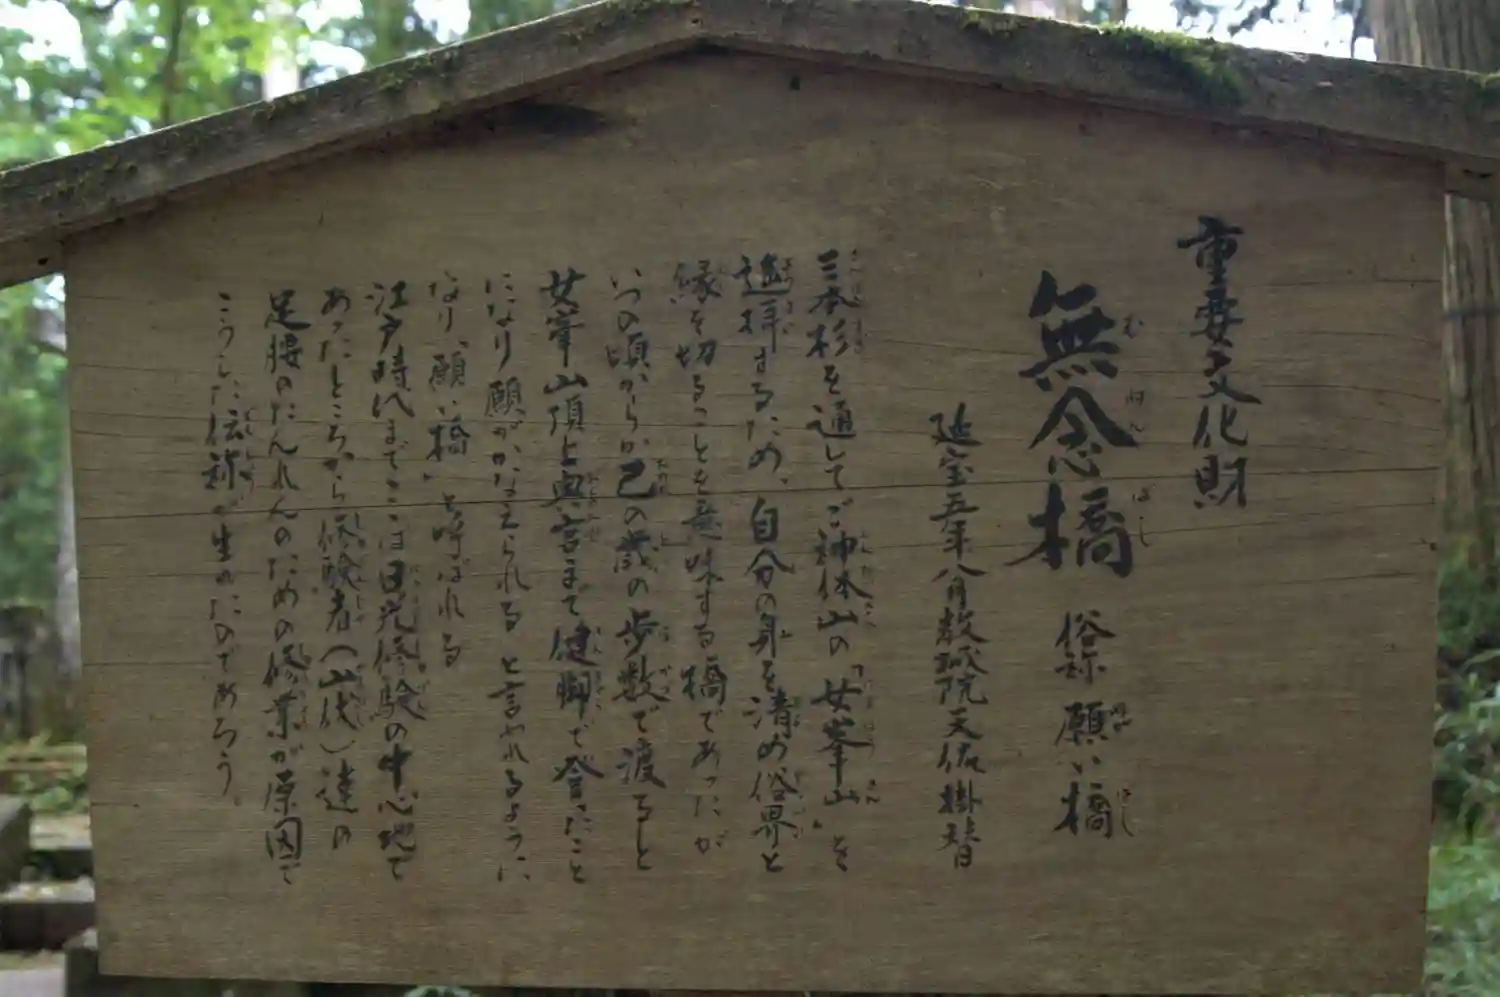 重要文化財
無念橋 俗称 願い橋
延宝五年八月教城院天佑掛替
三本杉を通してご神体山の「女峯山」を
遙拝するため、自分の身を清め俗界と
縁を切ることを意味する橋であったが
いつの頃からか己の歳の歩数で渡ると
女峯山頂上奥宮まで健脚で登ったこと
になり願がかなえられる と言われるように
なり、「願い橋」と呼ばれる
江戸時代までここは日光修験の中心地で
あったところから修験者(山伏)達の
足腰のたんれんのための修業が原因で
こうした伝称が生れたのであろう。